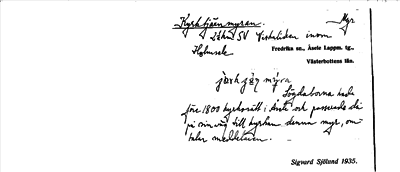 Kyrktjänmyran. Myr
2,2 km SV Fiskeliden inom
Holmsele Fredrika sn., Åsele Lappm. tg.,
Västerbottens län.
Lögdaborna hade
före 1800 kyrkorätt i Åsele och passerade då
på sin väg till kyrkan denna myr, om-
talar meddelaren.
Sigvard Sjölund 1935.